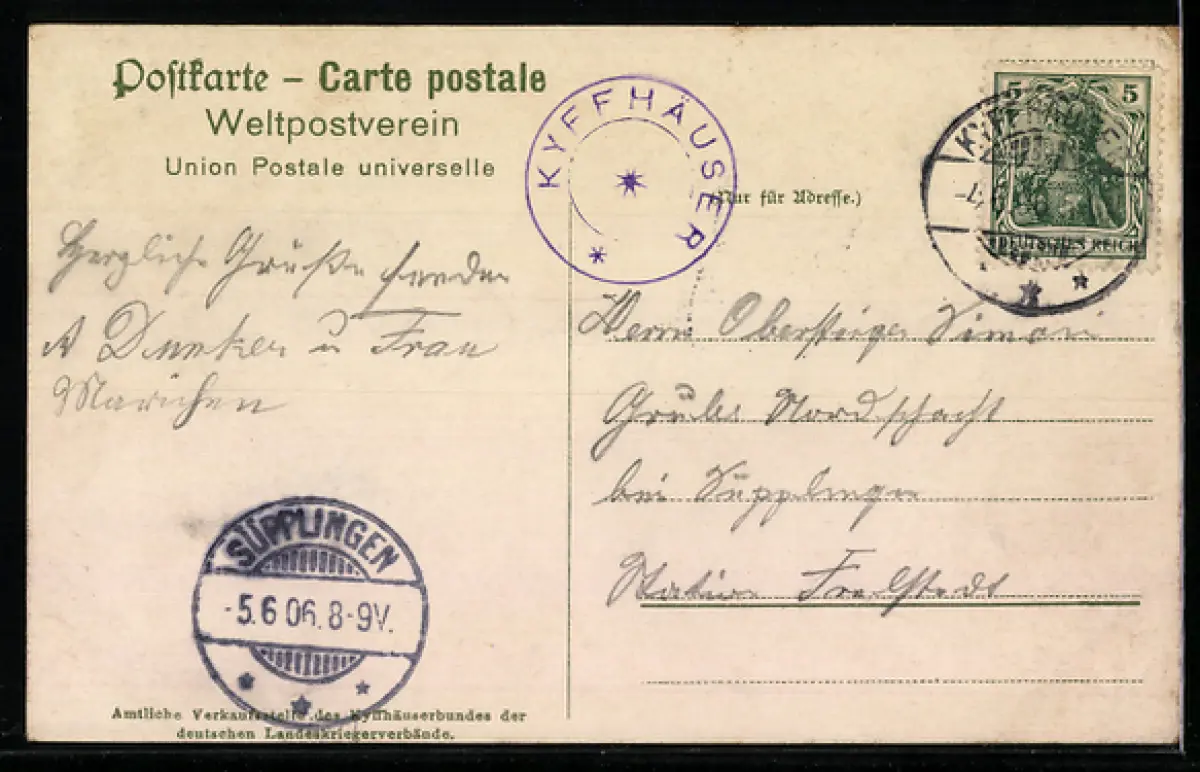 Postkarte – Carte postale
Weltpostverein
Union Postale universelle
KYFFHÄUSER
(Nur für Adresse.)
5 5
DEUTSCHES REICH
KYFFHÄUSER
Herzliche Grüße senden
A Dunker u Frau
Mariechen
Herrn Obersteiger Simon
Grube Nordschacht
bei Süpplingen
Station Frellstedt
SÜPPLINGEN
-5.6 06. 8-9V.
Amtliche Verkaufsstelle des Kyffhäuserbundes der
deutschen Landeskriegerverbände.